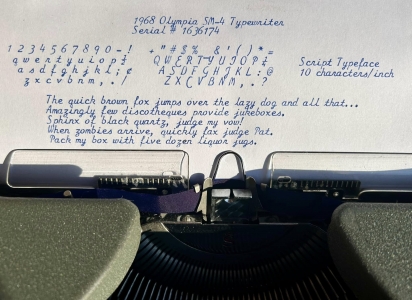 1968 Olympia SM-4 Typewriter
Serial # 1636174
1 2 3 4 5 6 7 8 9 0 - ! + " # $ % & ' ( ) * =
q w e r t y u i o p ‡ Q W E R T Y U I O P ‡ Script Typeface
a s d f g h j k l ; ¢ A S D F G H J K L : @ 10 characters/inch
z x c v b n m , . / Z X C V B N M , . ?
The quick brown fox jumps over the lazy dog and all that...
Amazingly few discotheques provide jukeboxes.
Sphinx of black quartz, judge my vow!
When zombies arrive, quickly fax judge Pat.
Pack my box with five dozen liquor jugs.